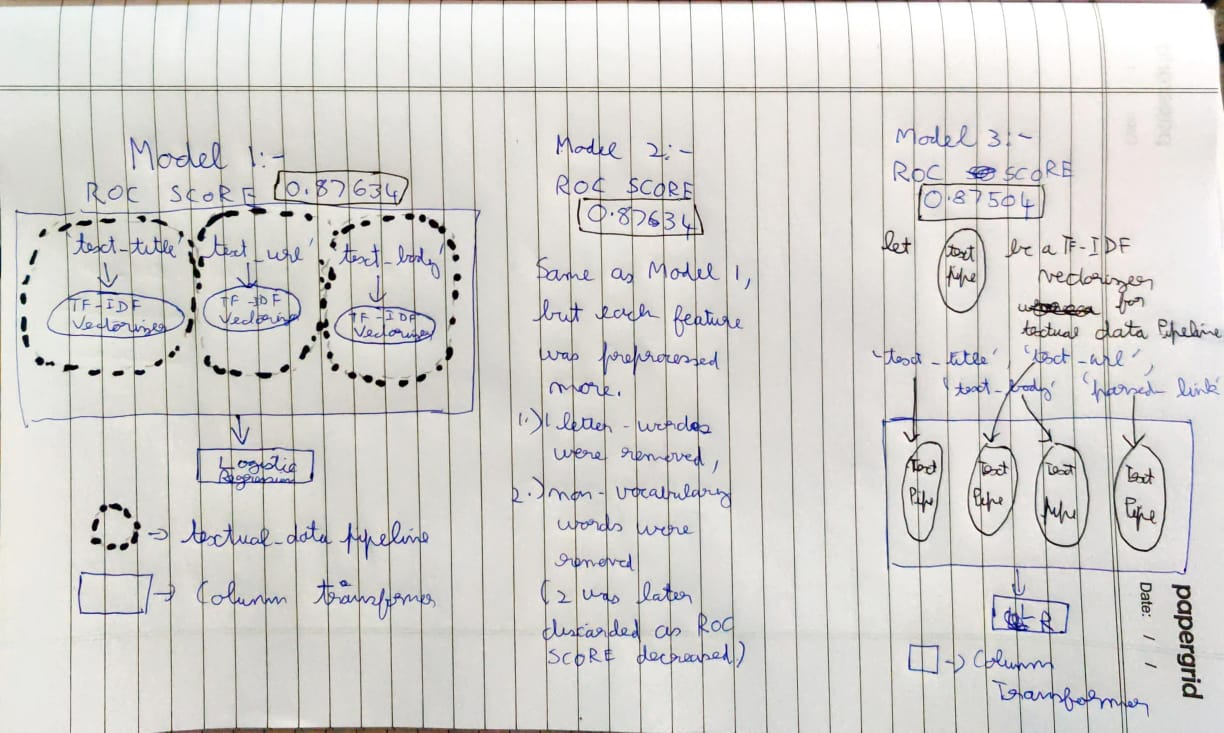 Model 1:-
ROC SCORE 0.87634
'text_title' 'text_url' 'text_body'
TF-IDF Vectorizer
TF-IDF Vectorizer
TF-IDF Vectorizer
Logistic
Regression
-> textual_data pipeline
-> Column transformer
Model 2:-
ROC SCORE
0.87634
Same as Model 1,
but each feature
was preprocessed
more.
1.) 1 letter-wordes
were removed,
2.) non-vocabulary
words were
removed
(2 was later
discarded as ROC
SCORE decreased.)
Model 3:-
ROC SCORE
0.87504
let text pipe be a TF-IDF
vectorizer
for
textual data Pipeline
'text_title', 'text_url',
'text_body' 'parsed_link'
Text Pipe
Text Pipe
Text pipe
Text Pipe
LR
-> Column
Transformer
papergrid
Date: / /